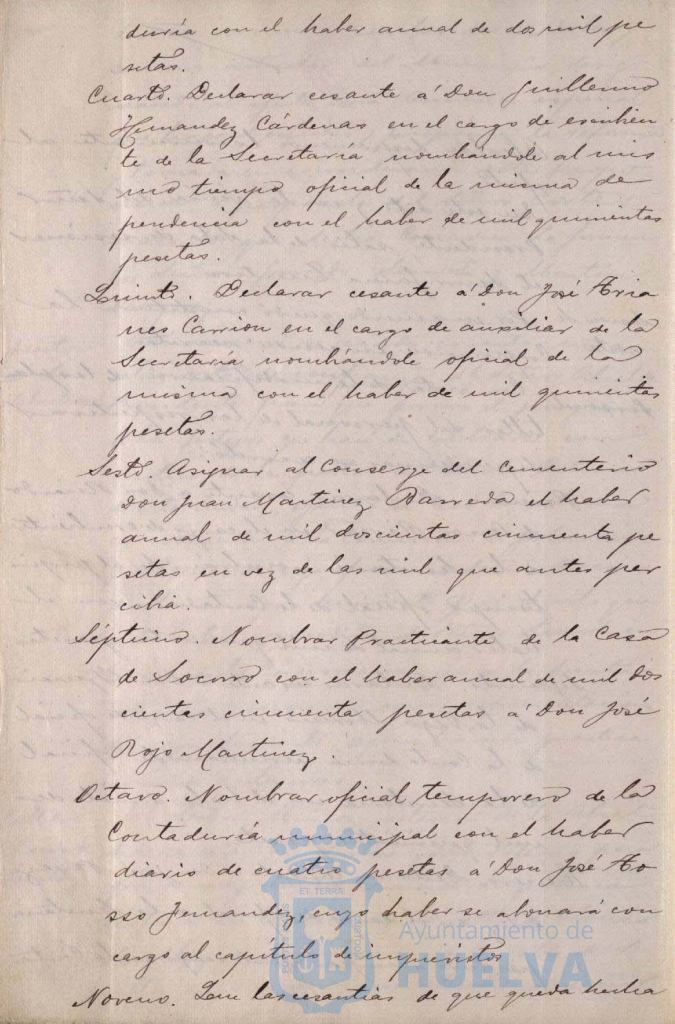 duría con el haber annal de dos mil pe
setas.
Cuarto. Declarar cesante á Don Guillermo
Hernandez Cárdenas en el cargo de escribien
te de la Secretaría nombrándole al mis
mo tiempo oficial de la misma de
pendencia con el haber de mil quinientas
pesetas.
Quinto. Declarar cesante á Don José Aria
nes Carrion en el cargo de auxiliar de la
Secretaría nombrándole oficial de la
misma con el haber de mil quinientas
pesetas.
Sesto. Asignar al Conserge del Cementerio
Don Juan Martinez Barreda el haber
annal de mil doscientas cincuenta pe
setas en vez de las mil que antes per
cibia.
Séptimo. Nombrar Practicante de la Casa
de Socorro con el haber annal de mil dos
cientas cincuenta pesetas á Don José
Rojo Martinez.
Octavo. Nombrar oficial temporero de la
Contaduría municipal con el haber
diario de cuatro pesetas á Don José
Fernandez, cuyo haber se abonará con
cargo al capítulo de imprevistos
Noveno. Que las cesantias de que queda hecha
Ayuntamiento de
HUELVA